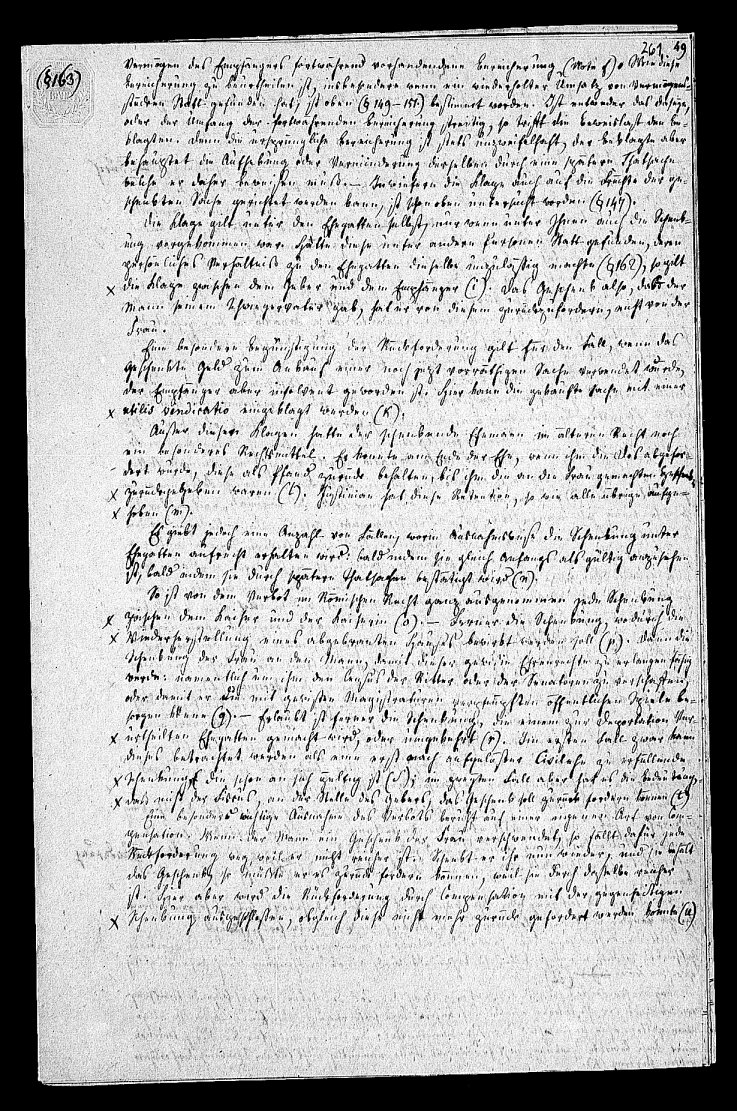 261. 49
(§163)
Vermögen des Empfängers fortwährend vorhandene Bereicherung (Note f). Wie diese
Bereicherung zu beurtheilen ist, insbesondere wenn ein wiederholter Umsatz von Vermögens-
stücken Statt gefunden hat, ist oben (§149-151.) bestimmt worden. Ist entweder das Daseyn,
oder der Umfang der fortwährenden Bereicherung streitig, so trifft die Beweislast den Be-
klagten. Denn die ursprüngliche Bereicherung ist stets unzweifelhaft, der Beklagte aber
behauptet die Aufhebung oder Verminderung derselben durch eine spätere Thatsache
welche er daher beweisen muß. – Inwiefern die Klage auch auf die Früchte der ge-
schenkten Sache gerichtet werden kann, ist schon oben untersucht worden (§147).
Die Klage gilt unter den Ehegatten selbst, nur wenn unter Ihnen auch die Schenk-
ung vorgekommen war. Hätte diese unter andern Personen Statt gefunden, deren
persönliches Verhältniß zu den Ehegatten dieselbe unzulässig machte (§162), so gilt
x die Klage zwischen dem Geber und dem Empfänger (i). Das Geschenk also, das der
Mann seinem Schwiegervater gab, hat er von diesem zurückzufordern, nicht von der
Frau.
Eine besondere Begünstigung der Rückforderung gilt für den Fall, wenn das
geschenkte Geld zum Ankauf einer noch jetzt vorräthigen Sache verwendet wurde,
der Empfänger aber insolvent geworden ist. Hier kann die gekaufte Sache mit einer
x utilis vindicatio eingeklagt werden (k).
Außer diesen Klagen hatte der schenkende Ehemann im älteren Recht noch
ein besonderes Rechtsmittel. Er konnte am Ende der Ehe, wenn ihm die Dos abgefor-
dert wurde, diese als Pfand zurück behalten, bis ihm die an die Frau gemachten Geschenke
x zurückgegeben waren (l). Justinian hat diese Retention, so wie alle übrige aufge-
x hoben (m).
Es giebt jedoch eine Anzahl von Fällen, worin Ausnahmsweise die Schenkung unter
Ehegatten aufrecht erhalten wird: bald indem sie gleich Anfangs als gültig anzusehen
ist, bald indem sie durch spätere Thatsachen bestätigt wird (n).
So ist von dem Verbot im Römischen Recht ganz ausgenommen jede Schenkung
x zwischen dem Kaiser und der Kaiserin (o). – Ferner die Schenkung, wodurch die
x Wiederherstellung eines abgebrannten Hauses bewirkt werden soll (p). Dann die
Schenkung der Frau an den Mann, damit dieser gewisse Ehrenrechte zu erlangen fähig
werde: namentlich um ihm den Census der Ritter oder der Senatoren zu verschaffen,
oder damit er die mit gewissen Magistraturen verknüpften öffentlichen Spiele be-
sorgen könne (q). – Erlaubt ist ferner die Schenkung, die einem zur Deportation Ver-
x urtheilten Ehegatten gemacht wird, oder umgekehrt (r). Im ersten Fall zwar kann
dieses betrachtet werden als eine erst nach aufgelöster Civilehe zu erfüllende
x Schenkung, die schon an sich gültig ist (s); im zweyten Fall aber hat es die Bedeutung,
x daß nicht der Fiscus, an der Stelle des Gebers, das Geschenk soll zurück fordern können (t)
Eine besonders wichtige Ausnahme des Verbots beruht auf einer eigenen Art von Com-
pensation. Wenn der Mann ein Geschenk der Frau verschwendet, so fällt dafür jede
Rückforderung weg, weil er nicht reicher ist. Schenkt er ihr nun wieder, und sie behält
das Geschenk, so müßte er es zurück fordern können, weil sie durch dasselbe reicher
ist. Hier aber wird die Rückforderung durch Compensation mit der gegenseitigen
x Schenkung ausgeschlossen, obgleich diese nicht mehr zurück gefordert werden konnte (u)